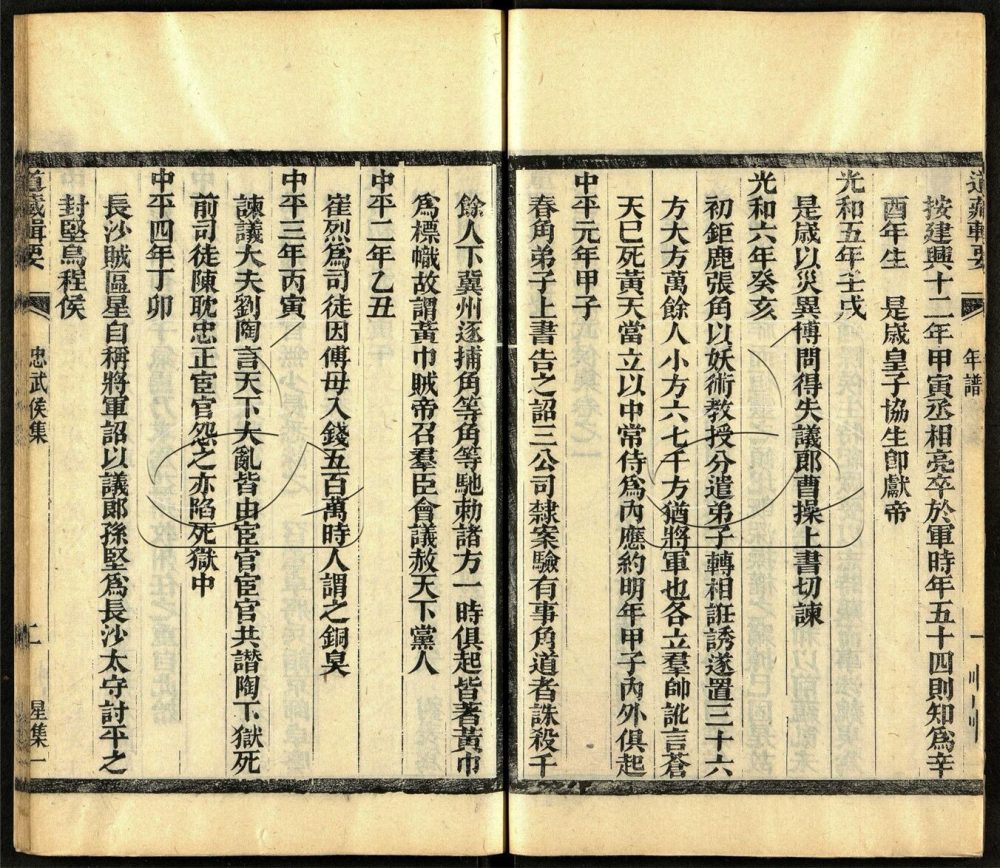 道藏輯要
年譜
按建興十二年甲寅丞相亮卒於軍時年五十四則知爲辛
酉年生 是歲皇子協生卽獻帝
光和五年壬戌
是歲以災異博問得失議郎曹操上書切諫
光和六年癸亥
初鉅鹿張角以妖術教授分遣弟子轉相誑誘遂置三十六
方大方萬餘人小方六七千方猶將軍也各立羣帥訛言蒼
天已死黃天當立以中常侍爲內應約明年甲子內外俱起
中平元年甲子
春角弟子上書告之詔三公司隸案驗有事角道者誅殺千
餘人下冀州逐捕角等角等馳勅諸方一時俱起皆著黃巾
爲標幟故謂黃巾賊帝召羣臣會議赦天下黨人
中平二年乙丑
崔烈爲司徒因傅母入錢五百萬時人謂之銅臭
中平三年丙寅
諫議大夫劉陶言天下大亂皆由宦官宦官共譖陶下獄死
前司徒陳耽忠正宦官怨之亦陷死獄中
中平四年丁卯
長沙賊區星自稱將軍詔以議郎孫堅爲長沙太守討平之
封堅烏程侯
道藏輯要
忠武侯集
二
星集一